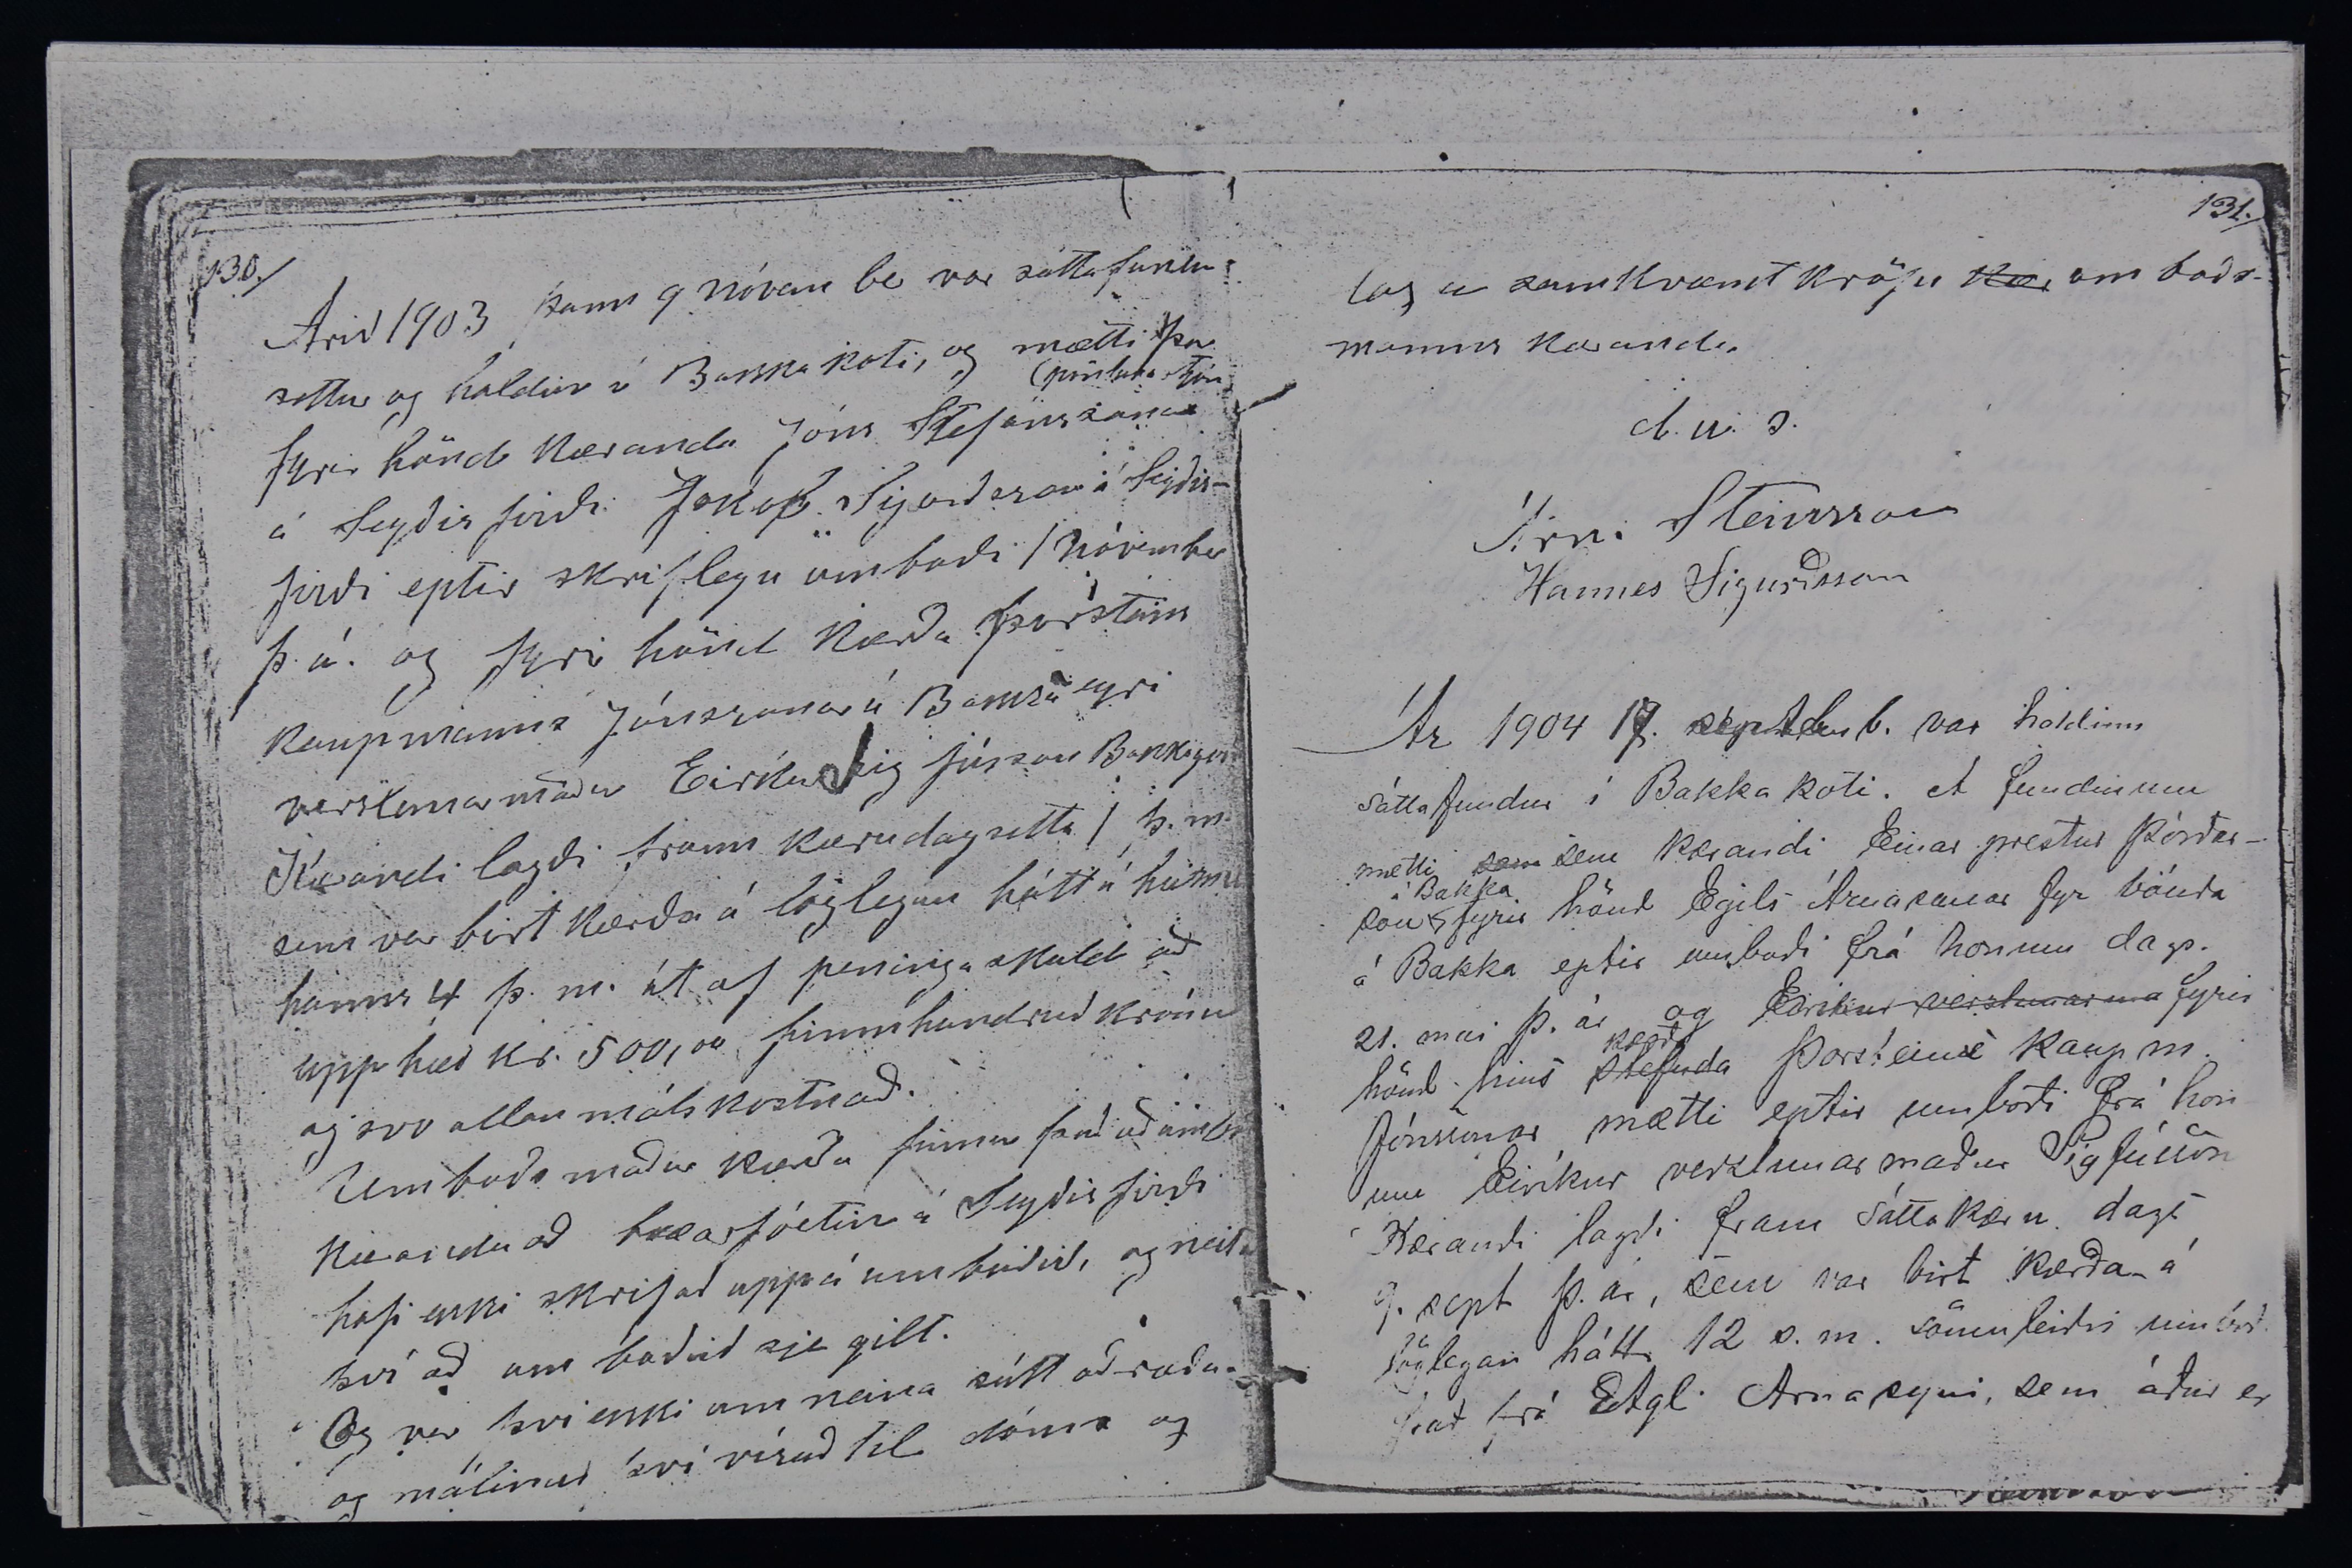 130./
Árið 1903 þann 9 nóvembe var sáttafundu-
settur og haldinn í Bakkakoti, og mætti þar
fyrir hönd Kæranda Jóns Stefánssonar
á Seyðisfirði Jakob Sigurðsson á Seyðis-
firði eptir skriflegu umboði 1 nóvember
þ. á. og fyrir hönd kærða Þorsteins
kaupmanns Jónssonar á Bakkaeyri
verslunarmaður Eiríkur Sigfússon Bakkager
Kærandi lagði fram kæru dagsetta 1 þ. m.
sem var birt kærða á löglegan hátt á heimil
hanns 4 þ. m. út af peninga skuld að
upphæð kr. 500,00 fimmhundruð krónu
og svo allan málskostnað.
Umboðsmaður kærða finnur það að umbo
Kæranda að bæarfóetin á Seyðisfirði
hafi ekki skrifað uppá umboðið, og neita
því að umboðið sje gilt.
Og var því ekki um neina sátt að ræða
og málinu því vísað til dóms og
131./
laga samkvæmt kröfu Kær umboðs-
manns kæranda.
d. u. s.
Árni Steinsson
Hannes Sigurðsson
Ár 1904 17. septemb. var haldinn
sáttafundur í Bakkakoti. Á fundinum
mætti sem sem kærandi Einar prestur Þórðar-
son á Bakka fyrir hönd Egils Árnasonar fyr bónda
á Bakka eptir umboði frá honum dags.
21. mai þ. ár og Eiríkur verzlunarma fyrir
hönd hins stefnda kærða Þorsteins kaupm.
Jónssonar mætti eptir umboði frá hon
um Eiríkur verzlunarmaður Sigfússon
Kærandi lagði fram sáttakæru dags
9. sept þ. ár, sem var birt kærða á
löglegan hátt 12 s. m. sömuleiðis umboð
frá Agli Árnasyni, sem áður er